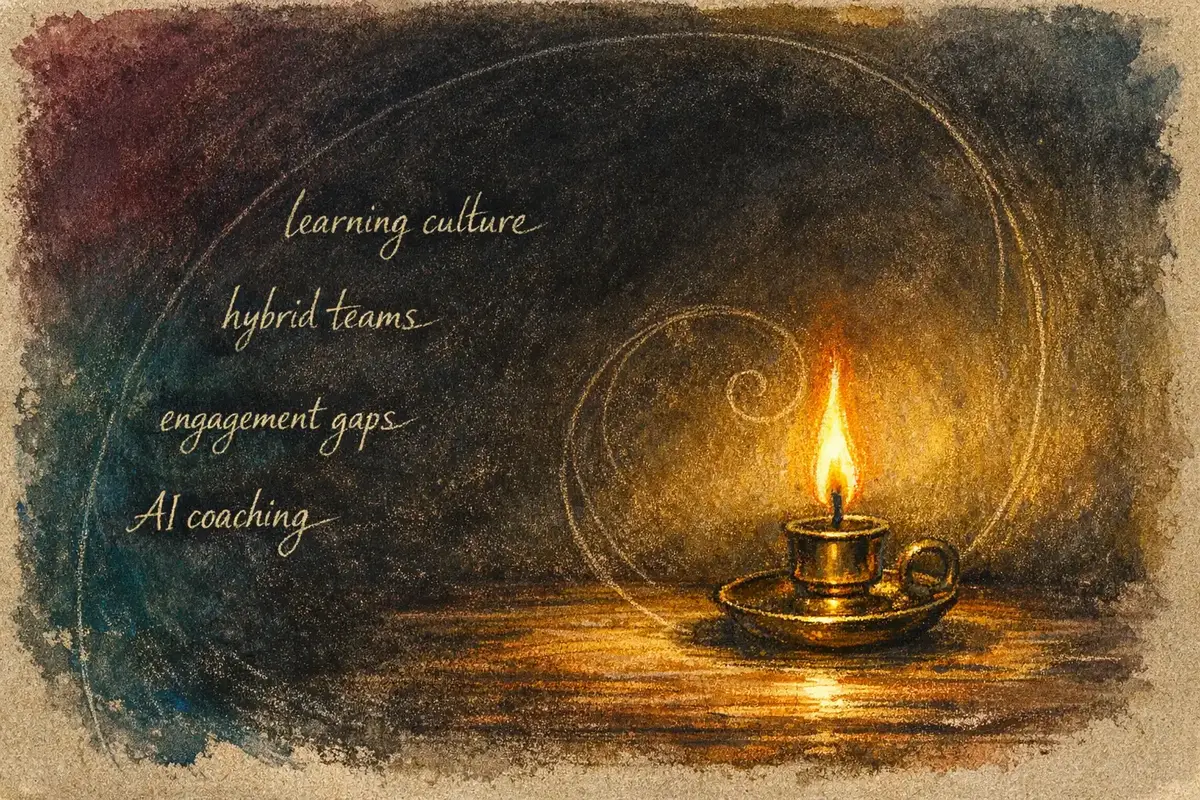 learning culture
hybrid teams
engagement gaps
AI coaching